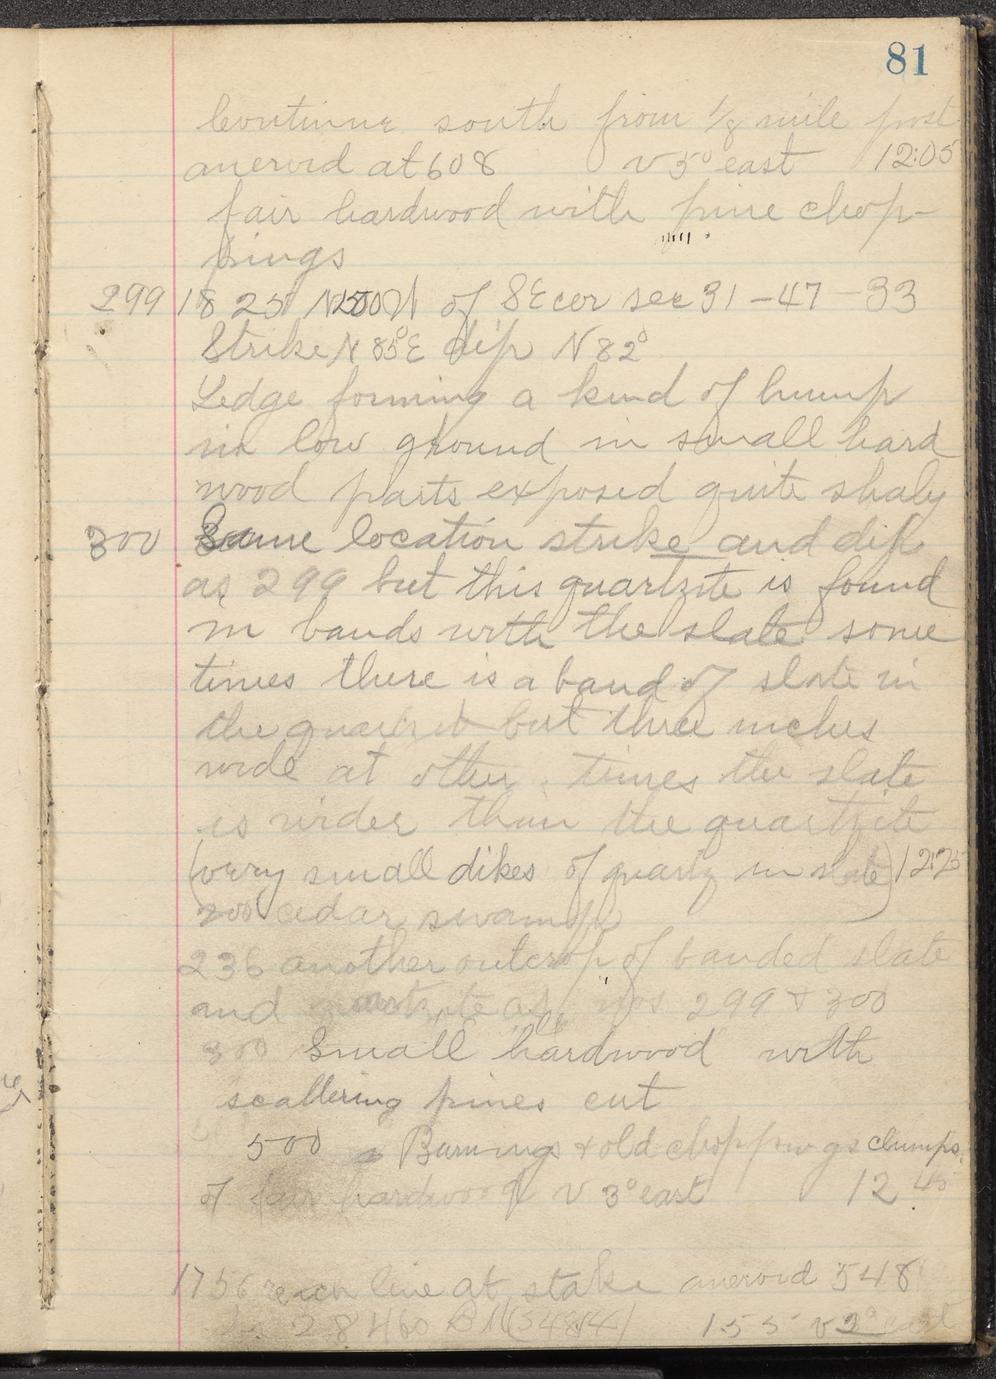 81
Continue south from 1/8 mile post
aneroid at 608 v 5° east 12:05
fair hardwood with pine chop-
pings
299 1825 N 2500 W of SE cor sec 31-47-33
Strike N 85° E dip N 82°
Ledge forming a kind of hump
in low ground in small hard
wood parts exposed quite shaly
300 Same location strike and dip
as 299 but this quartzite is found
in bands with the slate some
times there is a band of slate in
the but three inches
wide at other times the slate
is wider than the quartzite
(very small dikes of quartz in slate) 12:25
200 cedar swamp
236 another outcrop of banded slate
and quartzite as nos 299 & 300
300 Small hardwood with
scattering pines cut
500 Burnings & old choppings clumps
of fair hardwood v 3° east 12 45
1756 reach line at stake aneroid 548
28460 155 v 2° east